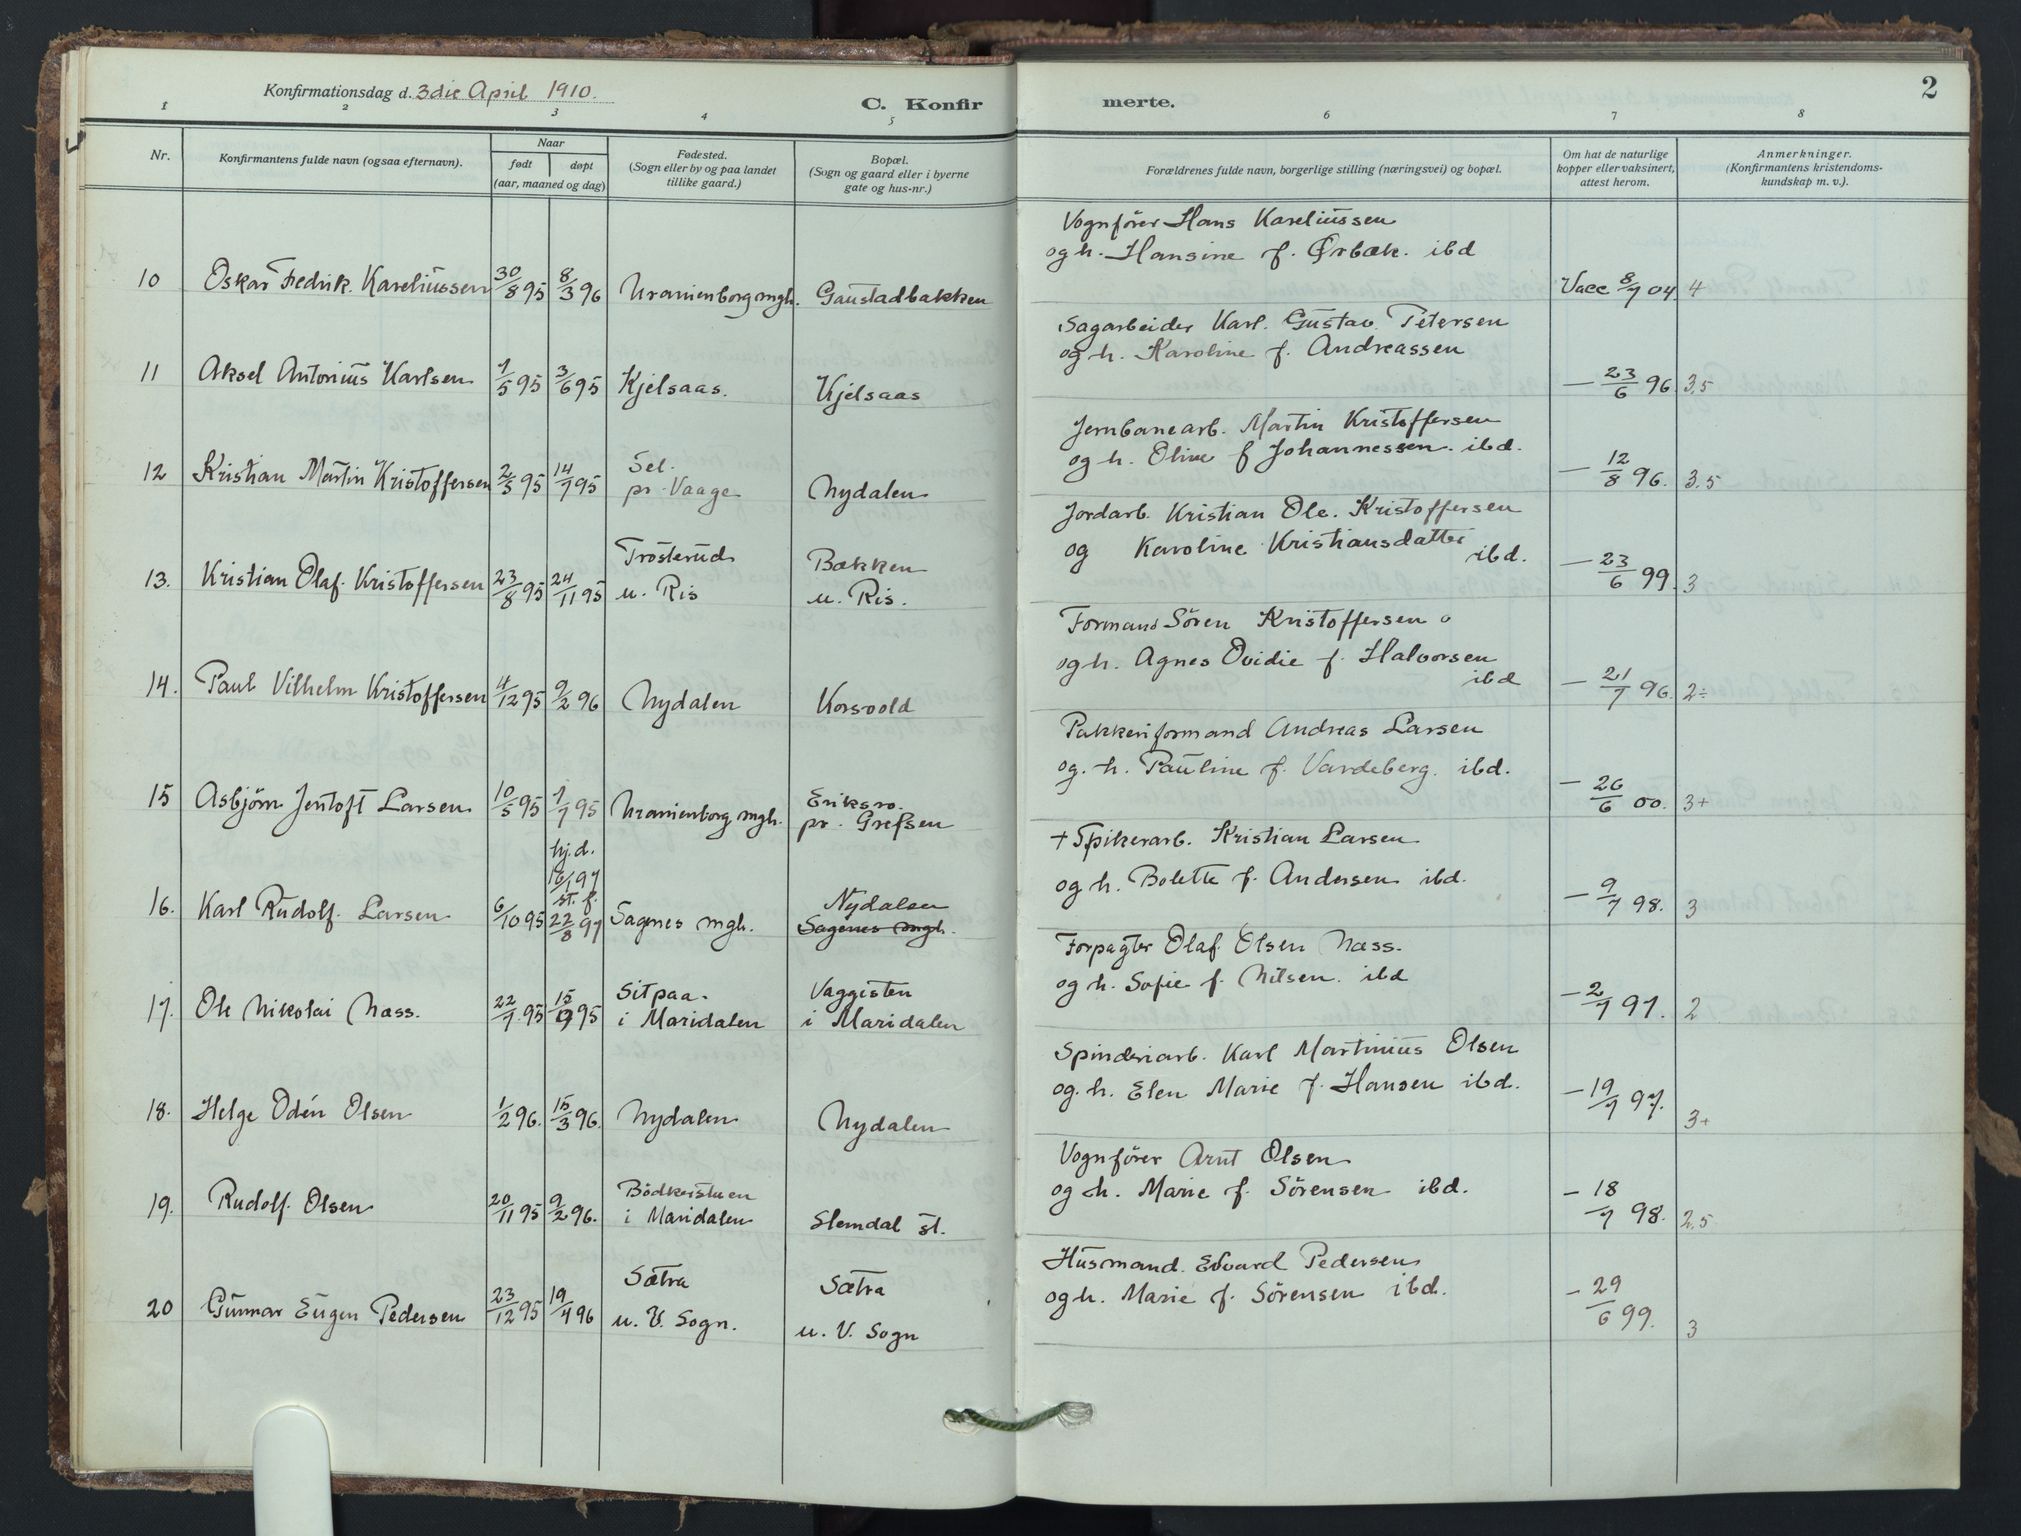 Konfirmationsdag d. 3die April 1910.
C. Konfir
merte.
2
1 2 3 4 5 6 7 8
Nr.
Konfirmantens fulde navn (ogsaa efternavn).
Naar
født
døpt
(aar, maaned og dag)
Fødested.
(Sogn eller by og paa landet
tillike gaard.)
Bopæl.
(Sogn og gaard eller i byerne
gate og hus-nr.)
Forældrenes fulde navn, borgerlige stilling (næringsvei) og bopæl.
Om hat de naturlige
kopper eller vaksinert,
attest herom.
Anmerkninger.
(Konfirmantens kristendoms-
kundskap m. v.).
Vognfører Hans Kareliussen
og h. Hansine f. Ørbæk. ibd
10 Oskar Fredrik. Kareliussen 30/8 95 8/3 96 Uranienborg mgh. Gaustadbakken Vacc 8/7 04 4
Sagarbeider Karl. Gustav. Petersen
og h. Karoline f. Andreassen
11 Aksel Antonius Karlsen 1/5 95 3/6 95 Kjelsaas. Kjelsaas — 23/6 96. 3,5
Jernbanearb. Martin Kristoffersen
og h. Oline f Johannessen. ibd.
12 Kristian Martin Kristoffersen 2/3 95 14/7 95 Sel. pr. Vaage Nydalen — 12/8 96. 3,5
Jordarb. Kristian Ole. Kristoffersen
og Karoline Kristiansdatter ibd.
13. Kristian Olaf. Kristoffersen 23/8 95 24/11 95 Trosterud u. Ris Bakken u. Ris. — 23/6 99. 3
Formand Sören Kristoffersen o
og h. Agnes Ovidie f. Halvorsen ibd
14. Paul Vilhelm Kristoffersen 4/12 95 9/2 96 Nydalen Korsvold — 21/7 96. 2÷
Pakkeriformand Andreas Larsen
og. h. Pauline f. Vardeberg. ibd.
15 Asbjörn Jentoft Larsen 10/5 95 1/7 95 Uranienborg mgh. Eriksro. pr. Grefsen — 26/6 00. 3+
+ Spikerarb. Kristian Larsen
og h. Bolette f. Andersen ibd.
16. Karl Rudolf. Larsen 6/10 95 hj.d. 16/1 97 st. f. 22/8 97 Sagnes mgh. Nydalen Sagenes mgh. — 9/7 98. 3
Forpagter Olaf Olsen Næss.
og h. Sofie f. Nilsen. ibd
17. Ole Nikolai Næss. 22/7 95 15/9 95 Sitpaa. i Maridalen Vaggisten i Maridalen — 2/7 97. 2
Spinderiarb. Karl Martinius Olsen
og. h. Elen Marie f. Hansen ibd.
18. Helge Odén Olsen 1/2 96. 15/3 96. Nydalen Nydalen — 19/7 97. 3+
Vognfører Arnt Olsen
og h. Marie f. Sörensen ibd.
19. Rudolf. Olsen 20/11 95 9/2 96. Bödkerstuen i Maridalen Slemdal st. — 18/7 98. 2,5
Husmand. Edvard Pedersen
og h. Marie f. Sörensen ibd.
20 Gunnar Eugen Pedersen 23/12 95 19/4 96 Sætra u. V. Sogn. Sætra u. V. Sogn — 29/6 99. 3